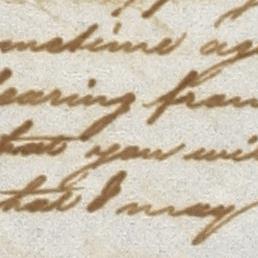 ometime ag
earing from
hat you wi
hat I may